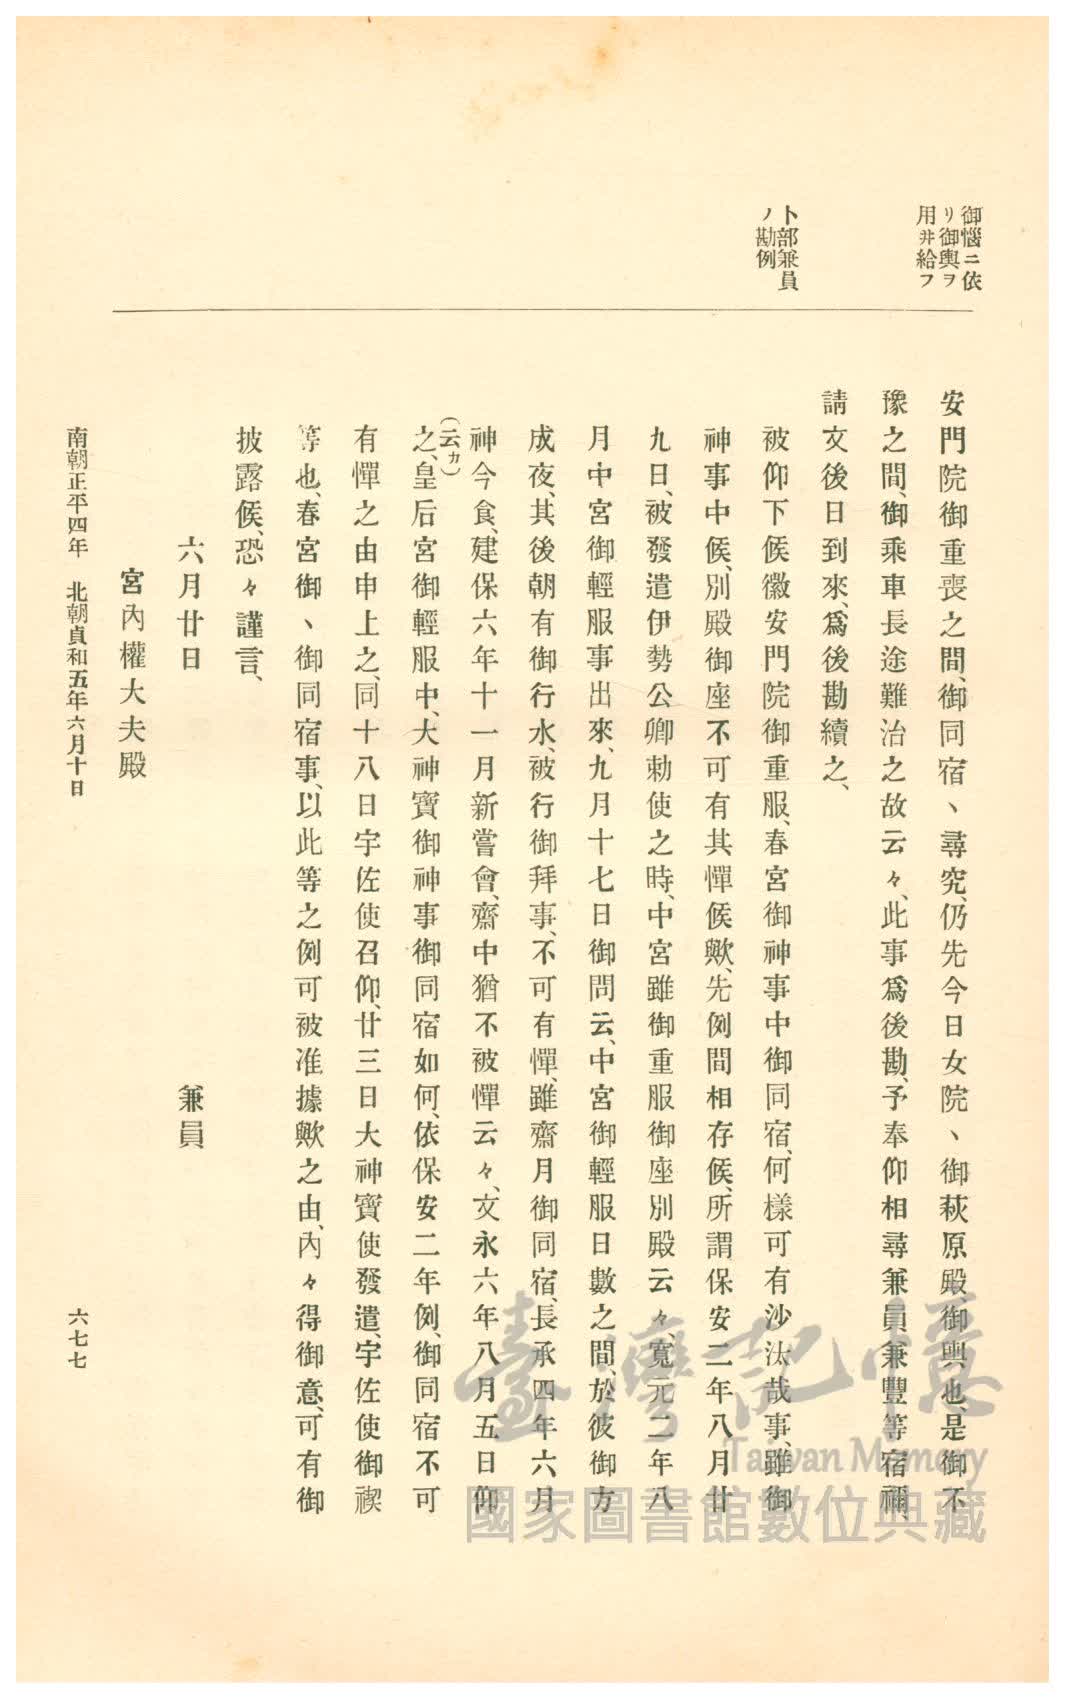 御惱ニ依
リ御輿ヲ
用ヰ給フ
卜部兼員
ノ勘例
安門院御重喪之間、御同宿丶尋究、仍先今日女院丶御萩原殿御輿也、是御不
豫之間、御乘車長途難治之故云々、此事爲後勘、予奉仰相尋兼員、兼豐等宿禰、
請文後日到來、爲後勘續之、
被仰下候徽安門院御重服、春宮御神事中御同宿、何樣可有沙汰哉事、雖御
神事中候、別殿御座不可有其憚候歟、先例間相存候、所謂保安二年八月廿
九日、被發遣伊勢公卿勅使之時、中宮雖御重服御座別殿云々、寬元二年八
月中宮御輕服事出來、九月十七日御問云、中宮御輕服日數之間、於彼御方
成夜、其後朝有御行水、被行御拜事、不可有憚、雖齋月御同宿、長承四年六月
神今食、建保六年十一月新嘗會、齋中猶不被憚云々、文永六年八月五日仰
(云カ)
之、皇后宮御輕服中、大神寶御神事御同宿如何、依保安二年例、御同宿不可
有憚之由申上之、同十八日宇佐使召仰、廿三日大神寶使發遣、宇佐使御禊
等也、春宮御丶御同宿事、以此等之例可被准據歟之由、內々得御意、可有御
披露候、恐々謹言、
六月廿日　兼員
宮內權大夫殿
南朝正平四年　北朝貞和五年六月十日　六七七
臺灣記憶
Taiwan Memory
國家圖書館數位典藏